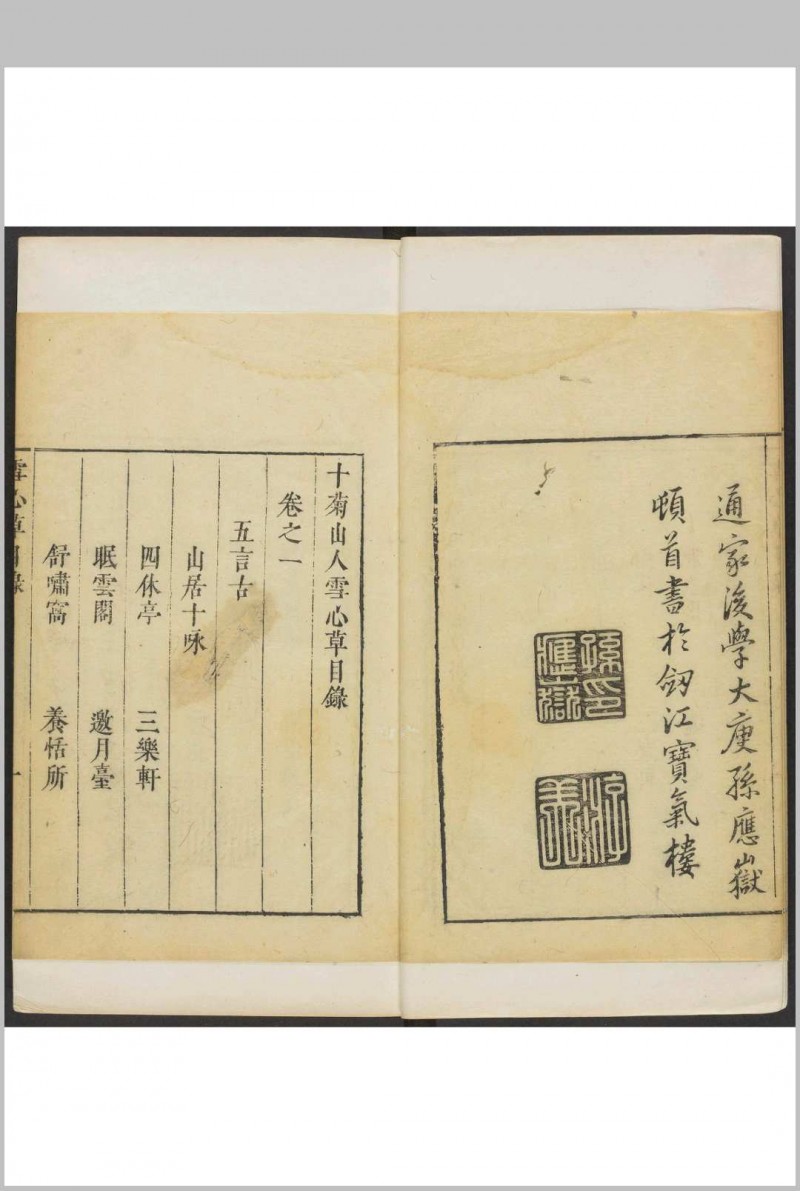 通家後學大庾孫應嶽
頓首書於劔江寶氣樓
孫印
應嶽
十菊山人雪心草目錄
卷之一
五言古
山居十咏
四休亭　三樂軒
眠雲閣　邀月臺
舒嘯窩　養恬所
雪心草目錄　一